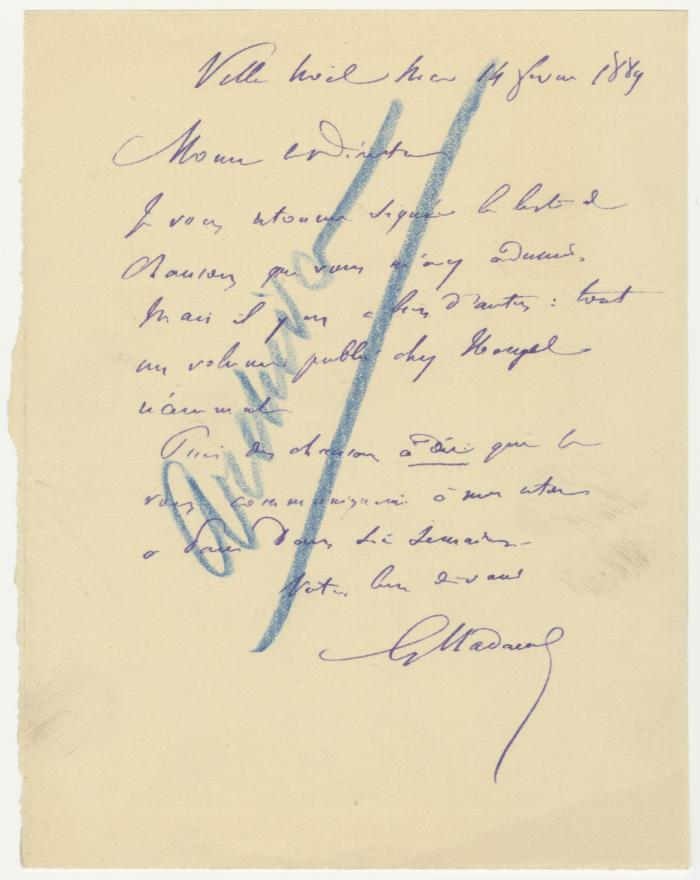 Villa Noël Nice 14 février 1889
Monsieur le Directeur
Je vous retourne signée la liste de
chansons que vous m'avez adressée.
Mais il y en a bien d'autres : tout
un volume publié chez Heugel
récemment
Puis des chansons à dire que je
vous communiquerai à mon retour
à Paris dans six semaines.
Votre bien dévoué
G Nadaud